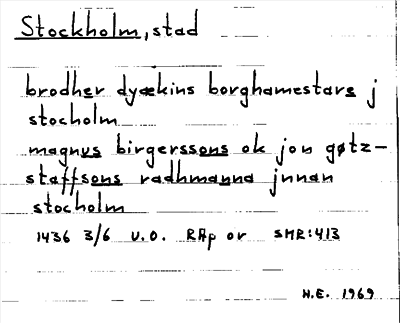 Stockholm, stad
brodher dyækins borghamestars j
stocholm
magnus birgerssons ok jon gøtz-
staffsons radhmanna jnnan
stocholm
1436 3/6 U.O. RAp or SMR:413
H.E. 1969